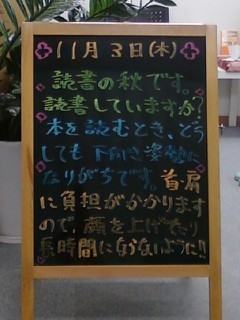 11月3日(木)
読書の秋です。
読書していますか?
本を読むとき、どう
しても下向き姿勢に
なりがちです。首・肩
に負担がかかります
ので、顔を上げたり
長時間にならないように!!